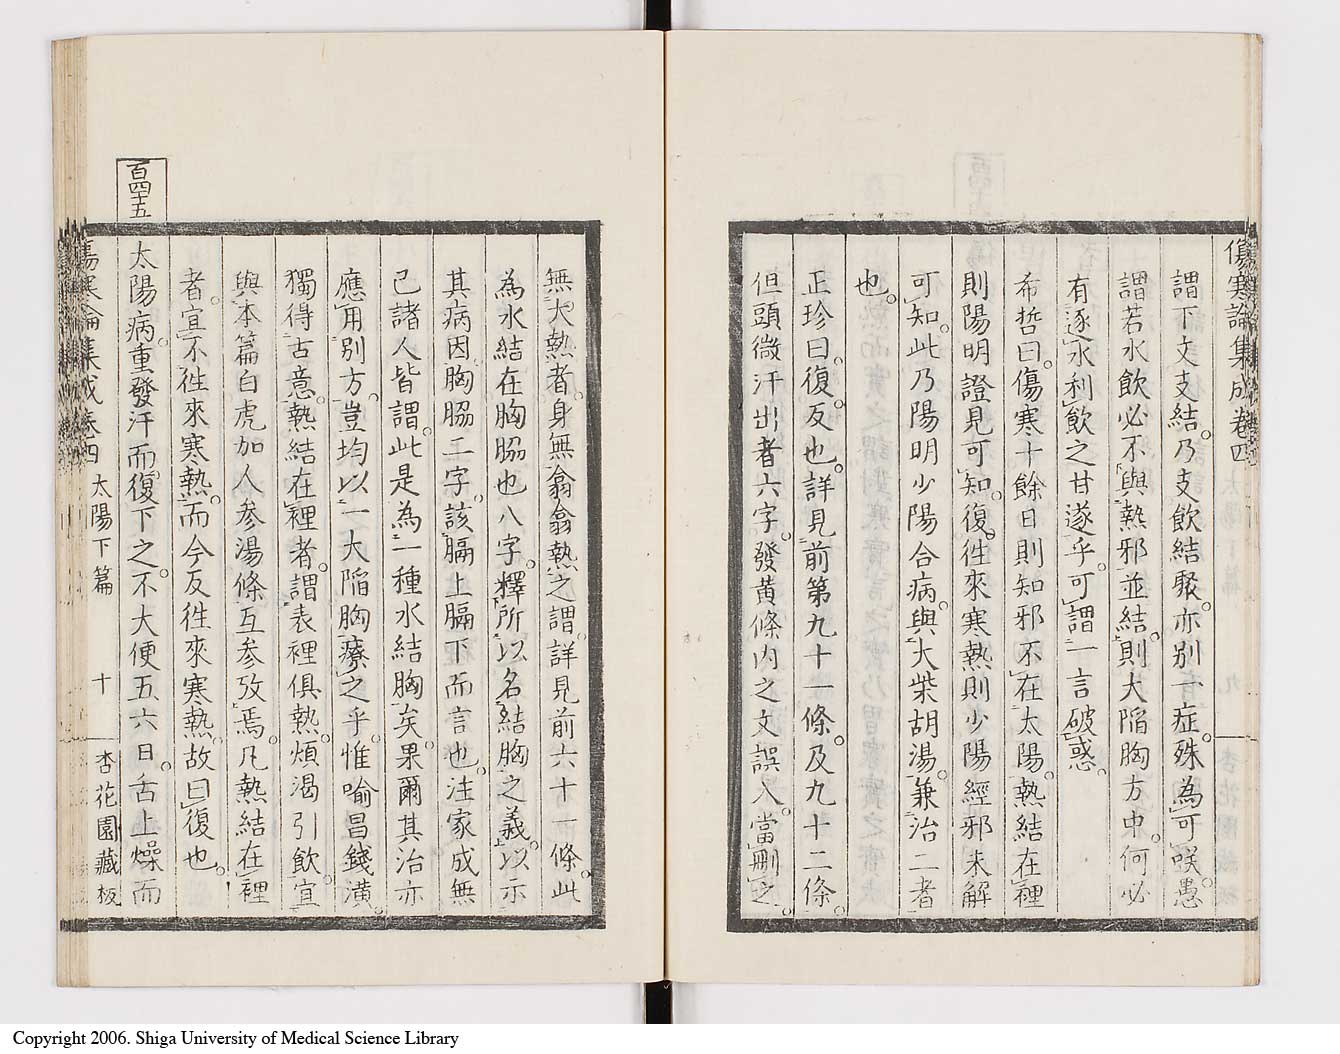 傷寒論集成卷四
謂下文支結乃支飲結聚亦別一症殊為可咲愚
謂若水飲必不與熱邪並結則大陷胸方中何必
有逐水利飲之甘遂乎可謂一言破惑
希哲曰傷寒十餘日則知邪不在太陽熱結在裡
則陽明證見可知復徃來寒熱則少陽經邪未解
可知此乃陽明少陽合病與大柴胡湯兼治二者
也
正珍曰復反也詳見前第九十一條及九十二條
但頭微汗出者六字發黃條內之文誤入當刪之
無大熱者身無翕翕熱之謂詳見前六十一條此
為水結在胸脇也八字釋所以名結胸之義以示
其病因胸脇二字該膈上膈下而言也注家成無
己諸人皆謂此是為一種水結胸矣果爾其治亦
應用別方豈均以一大陷胸療之乎惟喻昌錢潢
獨得古意熱結在裡者謂表裡俱熱煩渴引飲宜
與本篇白虎加人參湯條互參攷焉凡熱結在裡
者宜不徃來寒熱而今反徃來寒熱故曰復也
百四十五
太陽病重發汗而復下之不大便五六日舌上燥而
傷寒論集成卷四 太陽下篇 十 杏花園藏板
Copyright 2006. Shiga University of Medical Science Library